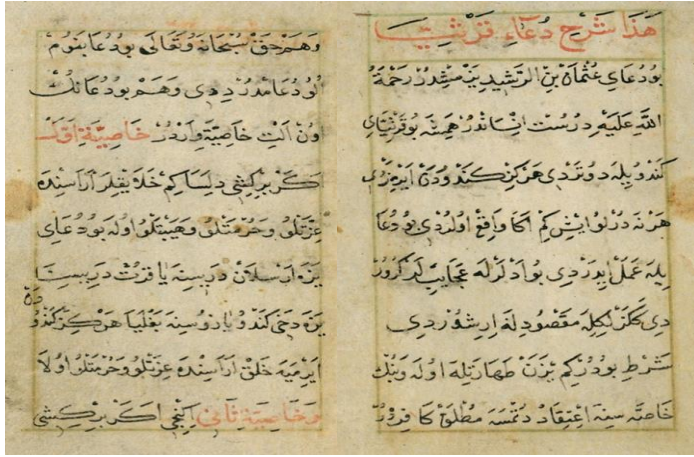 هَذَا شَرْحِ دُعَاءِ
بُودُعَاىِ عُثْمَانْ بِنِ الرَّشِيدِ بِنْ رَحْمَةُ
اللّٰهِ عَلَيْهِ دِرُسْتْ اِنْسَانْدُرْ هَمِيشَه
كَنْدُو بِيلَه دُوتَرْدِى هَرْكِزْ كَنْدُودَنْ اَيِرْمَزْدِى
هَرْ نَه دُرْلُو اِيشْ كِمْ اَكَا وَاقِعْ اُولُرْدِى بُو دُعَا
بِيلَه عَمَلْ اِيدَرْدِى بُو اَدْلَرْلَه عَجَايِبْلَرْ
دِى مَقْصُودِلَه اِرِشُورْدِى
شَرْطِ بُودُرْكِمْ يَزَنْ طَهَارَتِلَه اُولَه وَبُنُكْ
خَاصَّه سِنَه اِعْتِقَادْ مُطْلَقْ كَافِرْدُرْ
وَهَمْ حَقْ سُبْحَانَهُ وَتَعَالَى بُودُعَا
اُولُودُعَامِدُرْ دِدِى وَهَمْ بُودُعَانُكْ
وُنْ اَلْتِ خَاصِيَّةْ وَارْدُرْ خَاصِيَّةِ اَوَّلْ
اَكَرْ بِرْ كِشِى دِلَسَا كِمْ خَلَايِقْلَرْ اَرَاسِنْدَه
عِزَّتْلُو وَحُرْمَتْلُو وَهَيْبَتْلُو اُولَه بُودُعَاىِ
يَزَه اَرْسَلَانْ دَرِيسِنَه يَا قُرْتْ دَرِيسِنَا
يَزَه دَخِى كَنْدُو بَازُوسِنَه بَغْلَيَا هَرْكِزْ كَنْدُودَنْ
اَيِرْمِيَه خَلْقْ اَرَاسِنْدَه عِزَّتْلُو وَحُرْمَتْلُو اُولَا
وَخَاصِيَّةِ ثَانِى اِكِنْجِى اَكَرْ بِرْ كِشِى